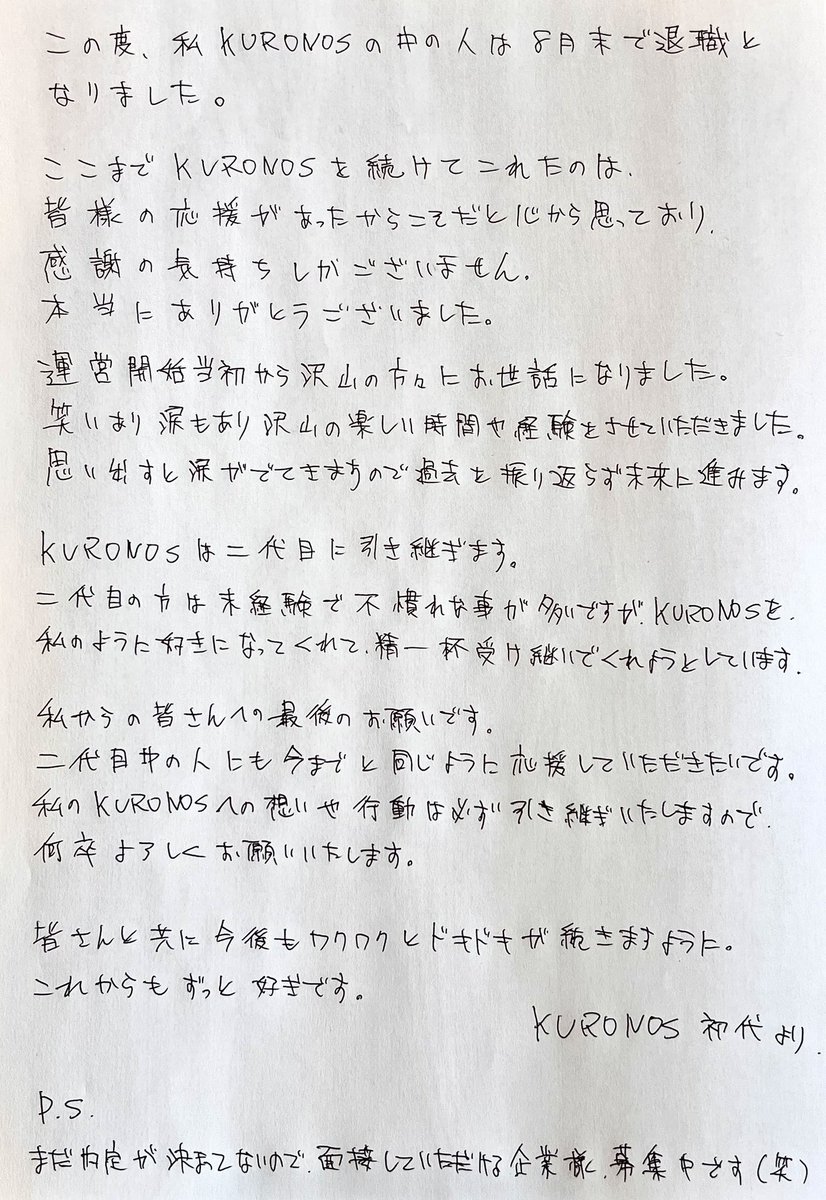 この度、私KURONOSの中の人は8月末で退職と
なりました。
ここまでKURONOSを続けてこれたのは、
皆様の応援があったからこそだと心から思っており、
感謝の気持ちしかございません。
本当にありがとうございました。
運営開始当初から沢山の方々にお世話になりました。
笑いあり涙もあり沢山の楽しい時間や経験をさせていただきました。
思い出すと涙がでてきますので過去を振り返らず未来に進みます。
KURONOSは二代目に引き継ぎます。
二代目の方は未経験で不慣れな事が多いですが、KURONOSを、
私のように好きになってくれて、精一杯受け継いでくれようとしています。
私からの皆さんへの最後のお願いです。
二代目中の人にも今までと同じように応援していただきたいです。
私のKURONOSへの想いや行動は必ず引き継ぎいたしますので、
何卒よろしくお願いいたします。
皆さんと共に今後もワクワクとドキドキが続きますように。
これからもずっと好きです。
KURONOS 初代より
P.S.
まだ内定が決まってないので、面接していただける企業様、募集中です(笑)